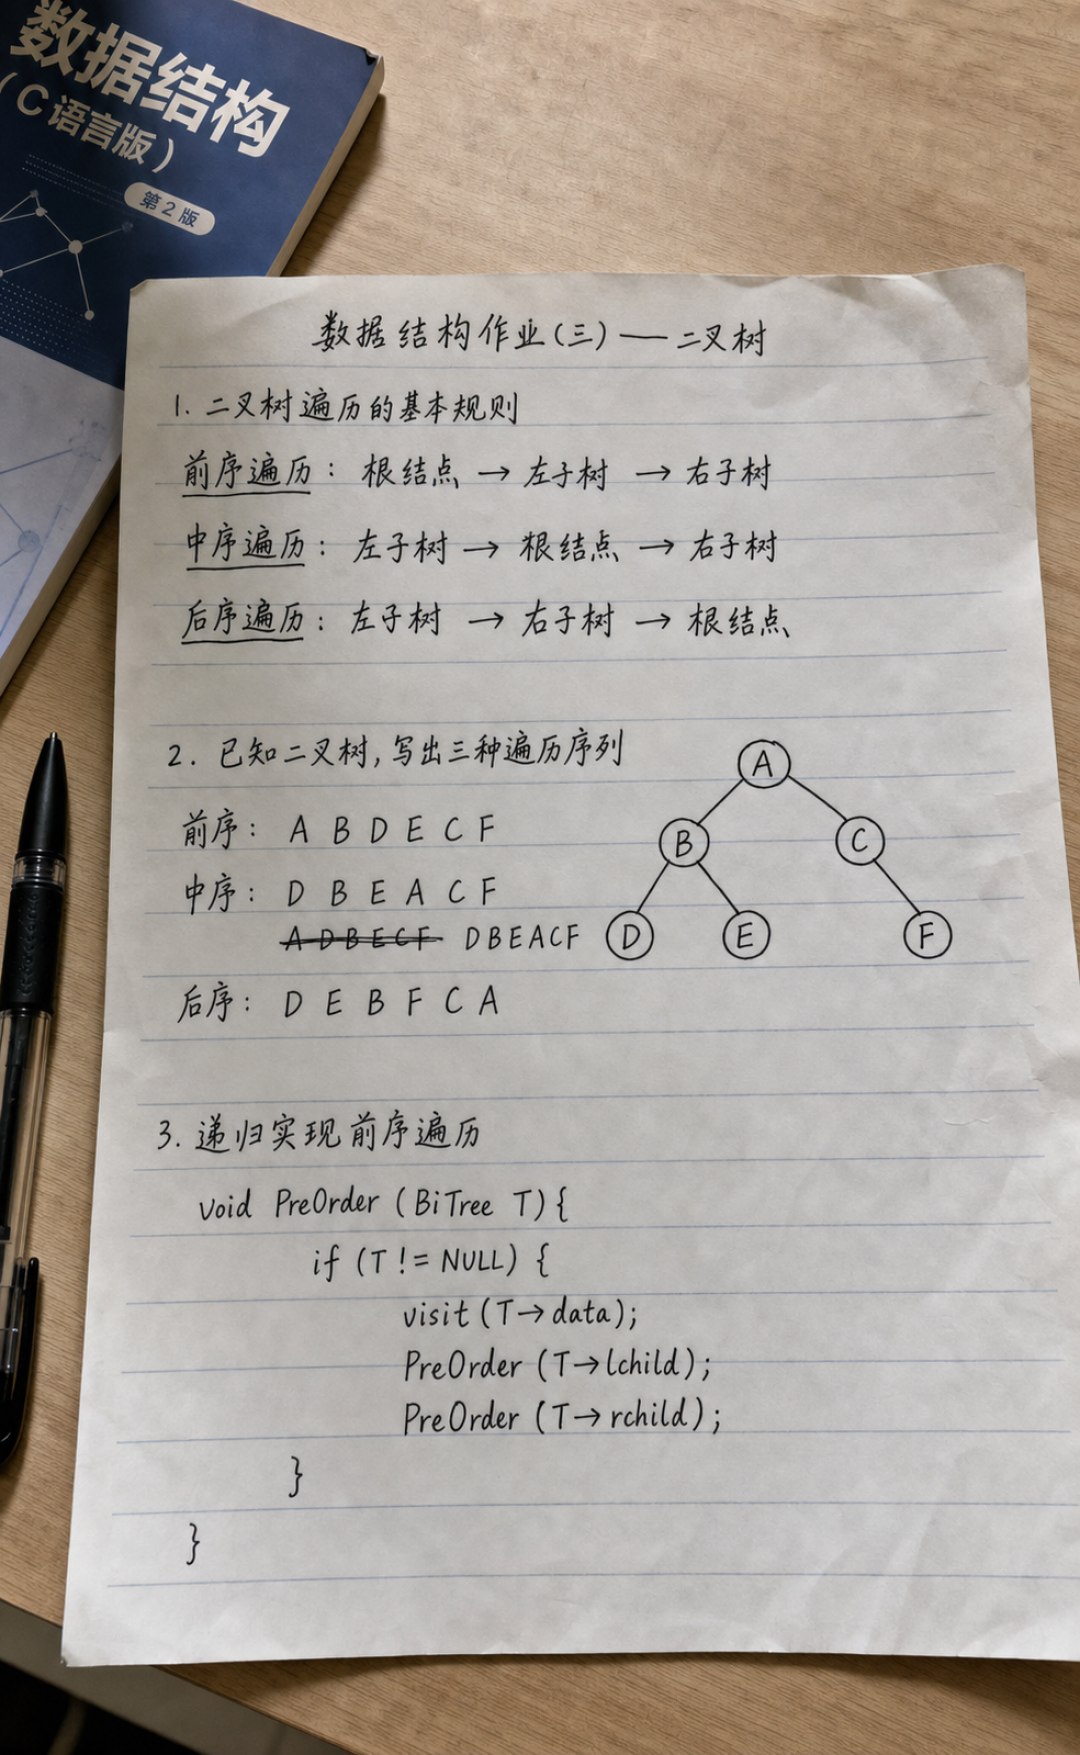 数据结构
(C语言版)
第2版
数据结构作业(三)——二叉树
1. 二叉树遍历的基本规则
前序遍历: 根结点 → 左子树 → 右子树
中序遍历: 左子树 → 根结点 → 右子树
后序遍历: 左子树 → 右子树 → 根结点
2. 已知二叉树,写出三种遍历序列
前序: A B D E C F
中序: D B E A C F
A D B E C F DBEACF
后序: D E B F C A
A
B C
D E F
3. 递归实现前序遍历
void PreOrder (BiTree T){
if (T != NULL) {
visit (T→data);
PreOrder (T→lchild);
PreOrder (T→rchild);
}
}